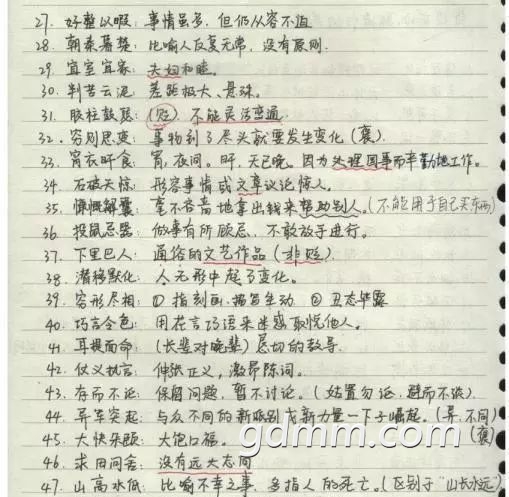 27. 好整以暇：事情虽多，但仍从容不迫
28. 朝秦暮楚：比喻人反复无常，没有原则.
29. 宜室宜家：夫妇和睦。
30. 判若云泥：差距极大、悬殊。
31. 胶柱鼓瑟：(贬) 不能灵活变通
32. 穷则思变：事物到了尽头就要发生变化(褒).
33. 宵衣旰食：宵，夜间。旰，天已晚。因为处理国事而辛勤地工作。
34. 石破天惊：形容事情或文章议论惊人。
35. 慷慨解囊：毫不吝啬地拿出钱来帮助别人。(不能用于自己买东西)
36. 投鼠忌器：做事有所顾忌，不敢放手进行。
37. 下里巴人：通俗的文艺作品(非贬).
38. 潜移默化：人无形中起了变化。
39. 穷形尽相：① 指刻画、描写生动 ② 丑态毕露
40. 巧言令色：用花言巧语来迷惑取悦他人。
41. 耳提面命：(长辈对晚辈)恳切的教导.
42. 仗义执言：伸张正义，激昂陈词。
43. 存而不论：保留问题，暂不讨论。(姑置勿论，避而不谈).
44. 异军突起：与众不同的新派别或新力量一下子崛起。(异，不同)
45. 大快朵颐：大饱口福。(褒)
46. 求田问舍：没有远大志向
47. 山高水低：比喻不幸之事，多指人的死亡。(区别于“山长水远”)
gdmm.com